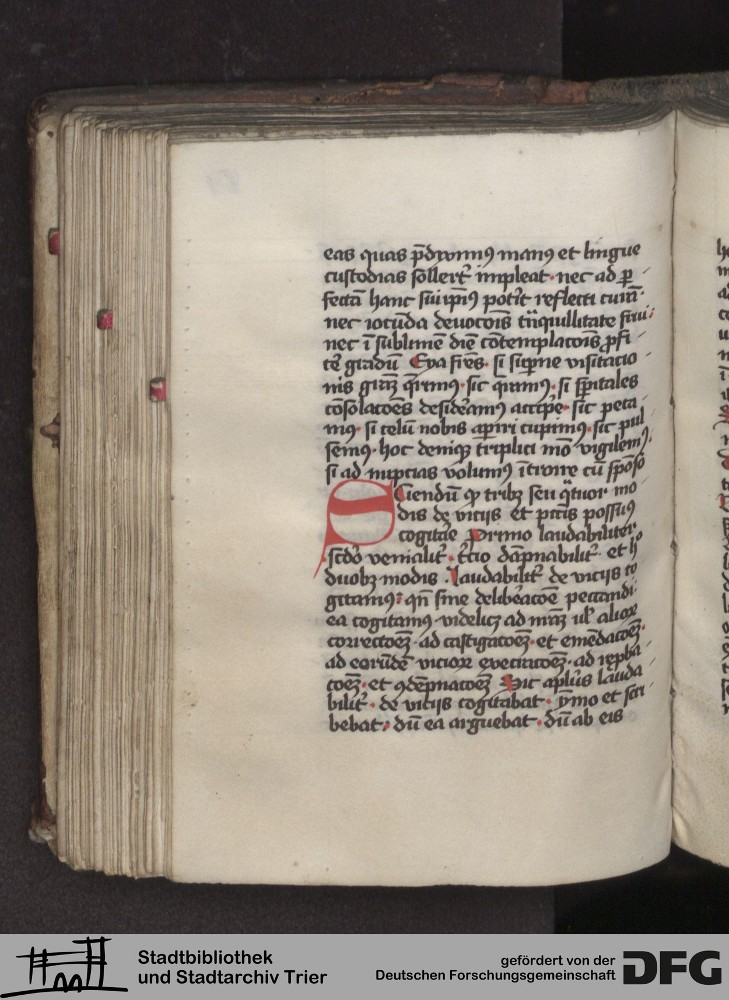 eas quas p̄dixim9 man9 et lingue
custodias sollert᷑ impleat · nec ad p̲
fectā hanc sui ip̄i9 pot̄it reflecti curā ·
nec iocūda deuoc̄ois t̄nquillitate frui ·
nec ī sublimē diē cōtemplac̄ois p̲fi
 gradū Eya fr̄es · si sup̲ne visitacio
nis
 sic  · si sp̄itales
cōsolac̄oes desideam9 accip̲e · sic peta
m9 · si celū nobis ap̲iri cupim9 · sic pul
sem9 · hoc deniq3 triplici mō vigilem9 ·
si ad nuptias volum9 ītroire cū sponso
Sciendū qꝫ trib3 seu q̄tuor mo
dis de vicijs et p̄ctis possum9
cogitare Primo laudabiliter
sc̄do venialit᷑ · t̄cio dāpnabilit᷑ · et h°
duob3 modis · Laudabilit᷑ de vicijs co
gitam9 · qn̄ sine delib̄eac̄oe peccandi ·
ea cogitam9 videlic3 ad  ul̄ alioꝝ
correcc̄oe3 · ad castigac̄oe3 · et emēdac̄oe3 ·
ad eorūdē vicioꝝ  · ad rep̲ba
c̄oe3 · et 9dēpnac̄oe3 Sic ap̄lus lauda
bilit᷑ · de vicijs cogitabat · ymo et scri
bebat · dū ea arguebat · dū ab eis
Stadtbibliothek
und Stadtarchiv Trier
gefördert von der
Deutschen Forschungsgemeinschaft
DFG